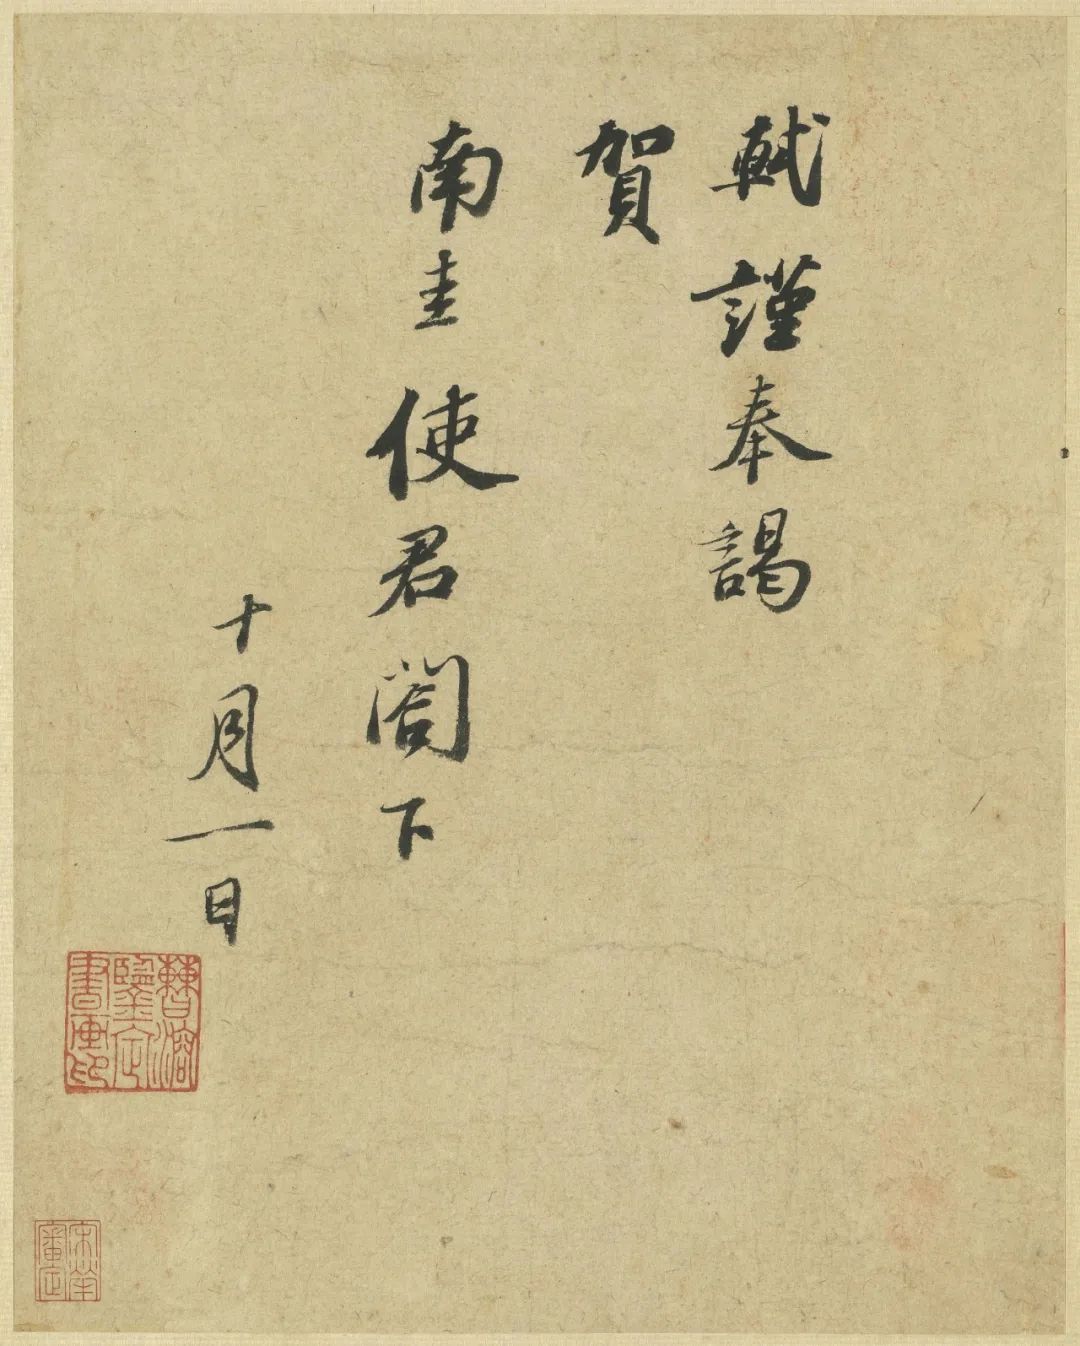 軾謹奉謁
賀
南圭使君閤下
十月一日
曹溶
鑒定
書畫印
宋犖
審定